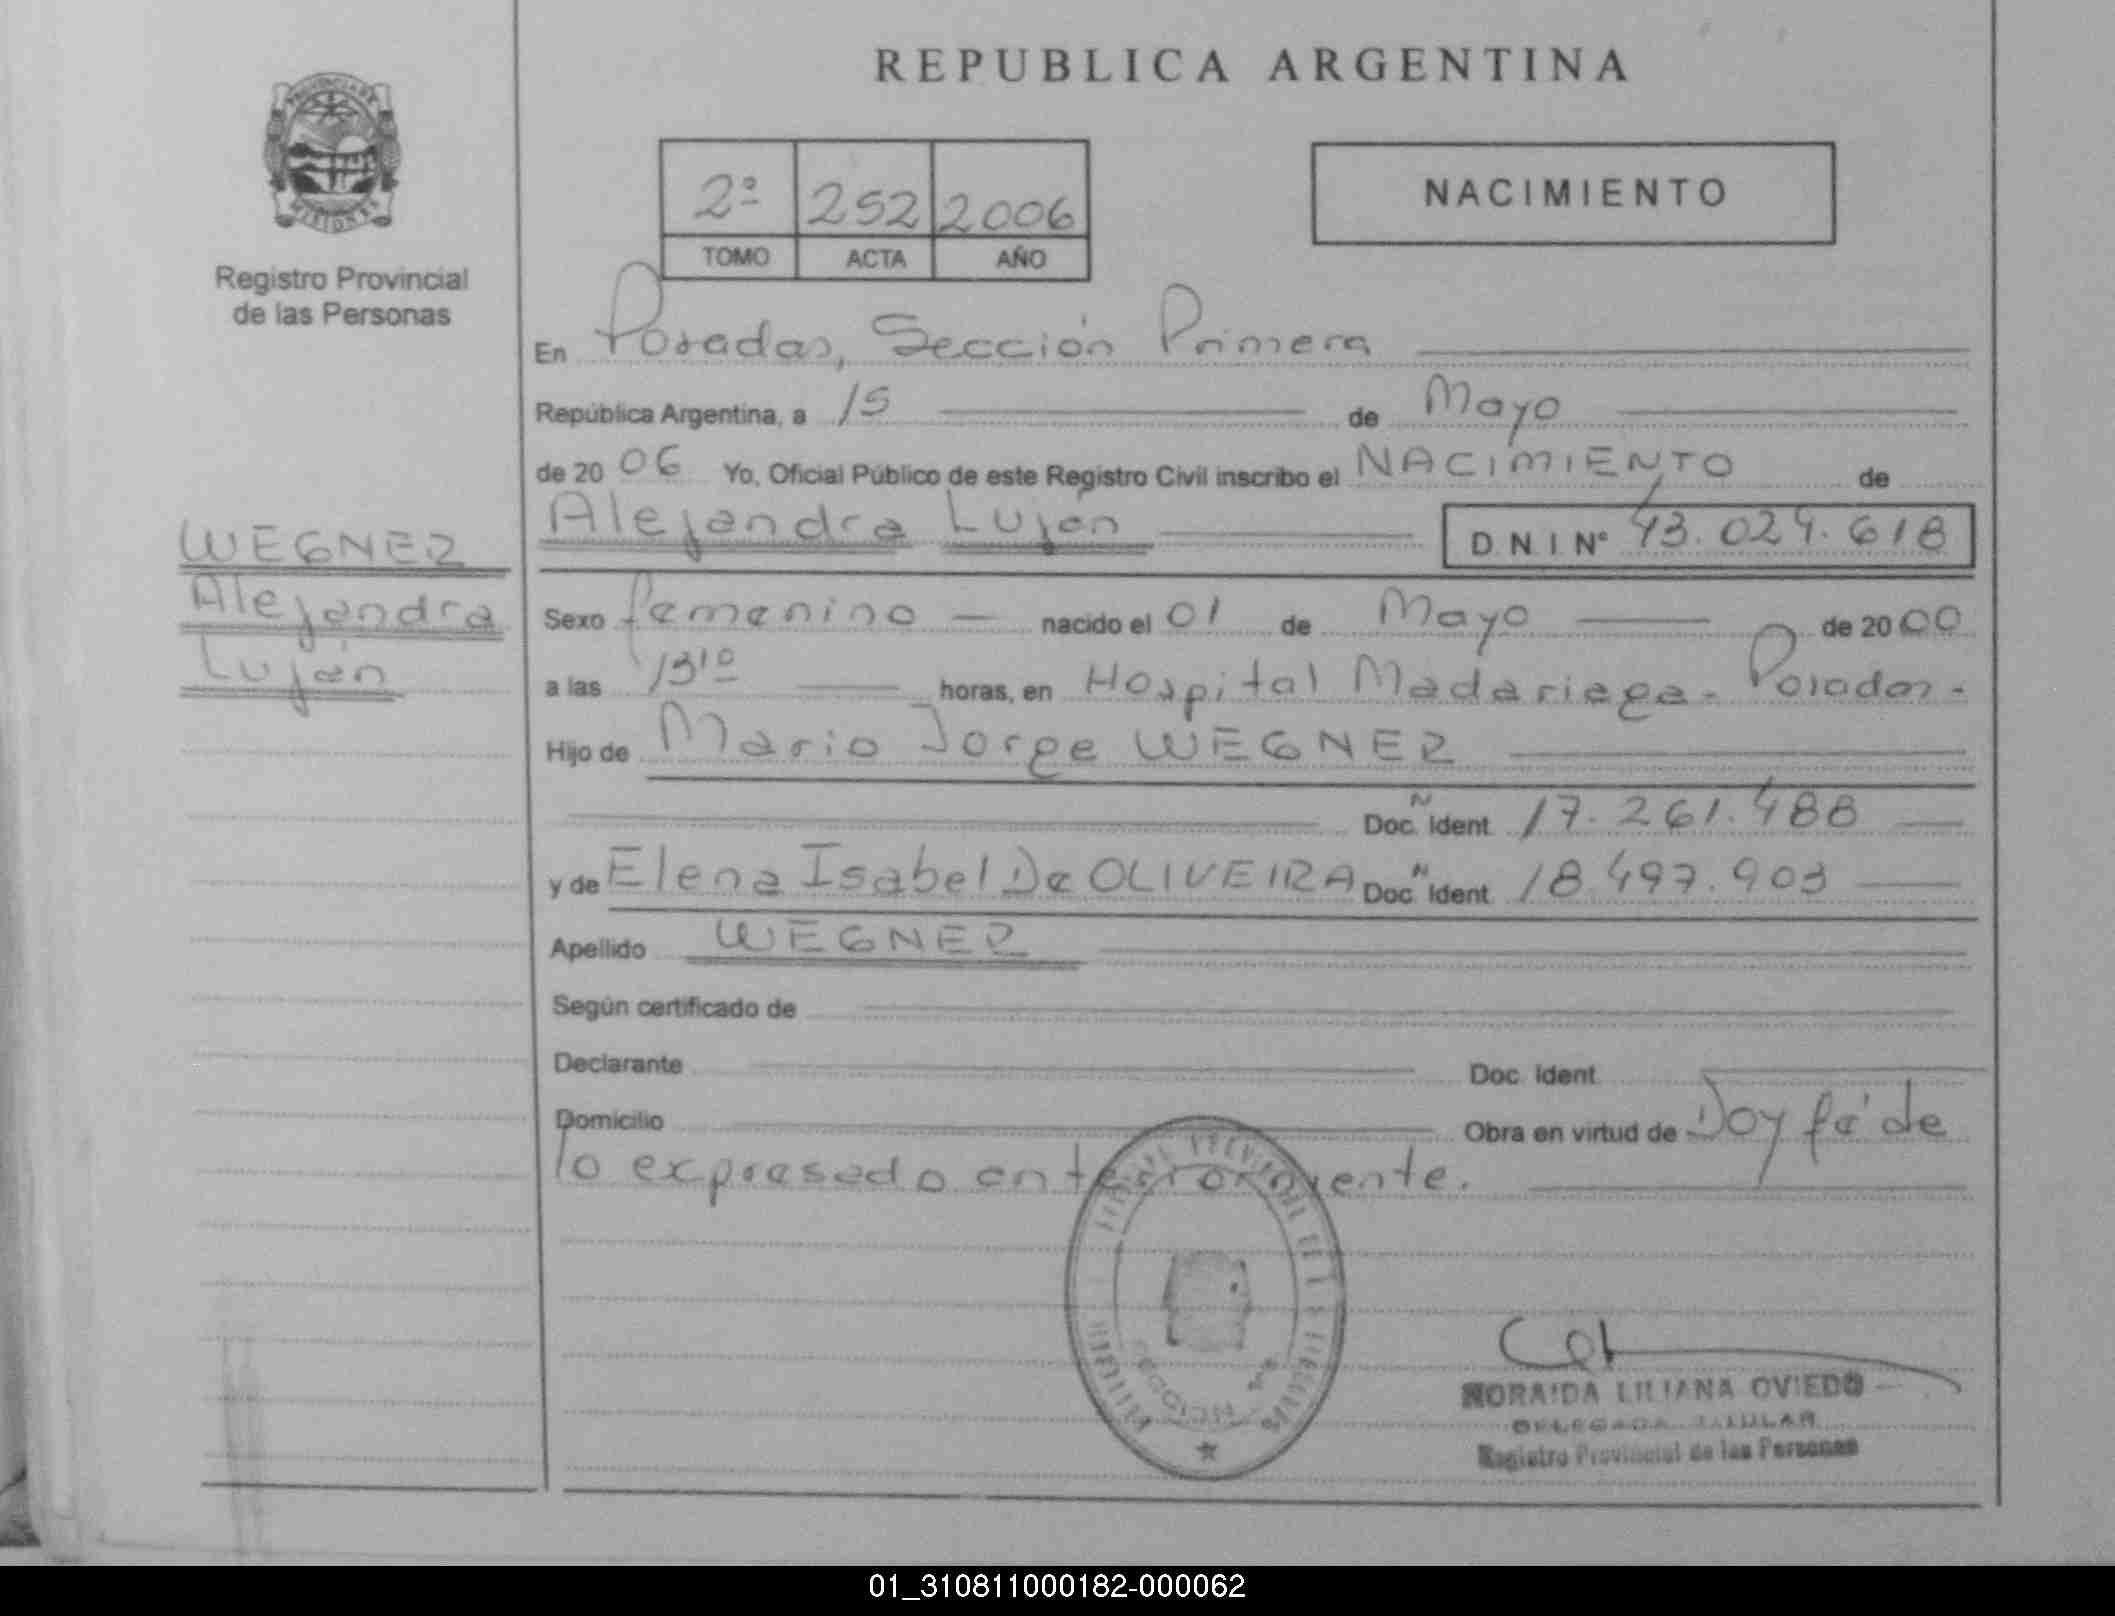 REPUBLICA ARGENTINA
PROVINCIA DE
MISIONES
Registro Provincial
de las Personas
2º 252 2006
TOMO ACTA AÑO
NACIMIENTO
En Posadas, Sección Primera
República Argentina, a 15 de Mayo
de 2006 Yo, Oficial Público de este Registro Civil inscribo el NACIMIENTO de
Alejandra Luján D.N.I. Nº 43.024.618
WEGNER
Alejandra
Luján
Sexo femenino nacido el 01 de Mayo de 2000
a las 13¹⁰ horas, en Hospital Madariaga - Posadas -
Hijo de Mario Jorge WEGNER
Doc. Ident. N 17.261.488
y de Elena Isabel De OLIVEIRA Doc. Ident. N 18.497.903
Apellido WEGNER
Según certificado de
Declarante Doc. Ident.
Domicilio Obra en virtud de Doy fé de
lo expresado anteriormente.
NORAIDA LILIANA OVIEDO
DELEGADA TITULAR
Registro Provincial de las Personas
01_310811000182-000062